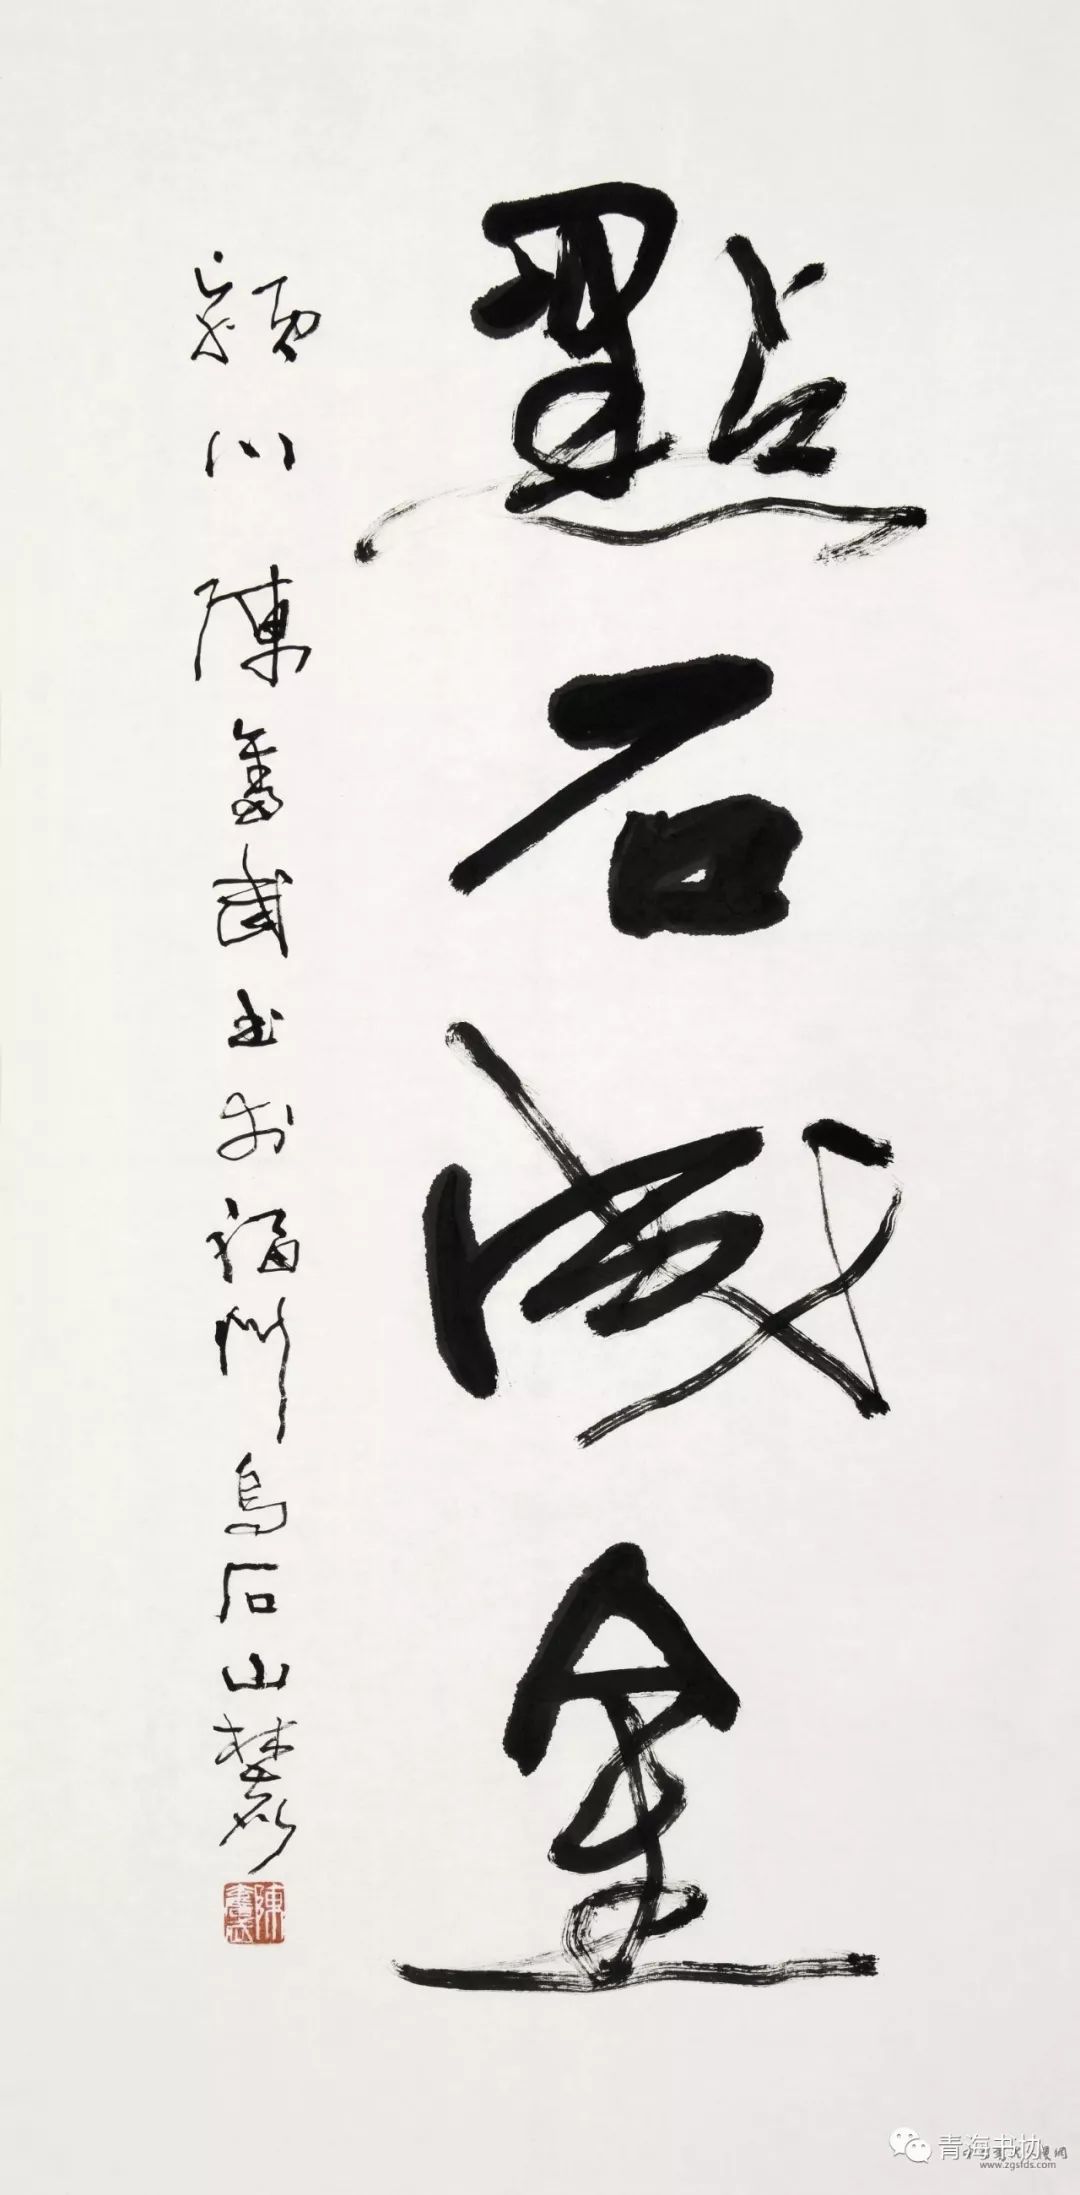 點石成金
潁川陳奮武書於福州烏石山麓
陳奮武
青海书协
www.zgsfds.com